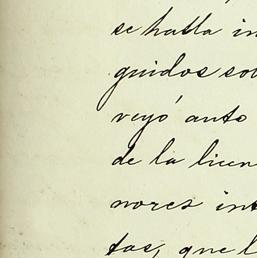 se halla in
guidos sou
veyó auto
de la licen
nores int
tos, que l